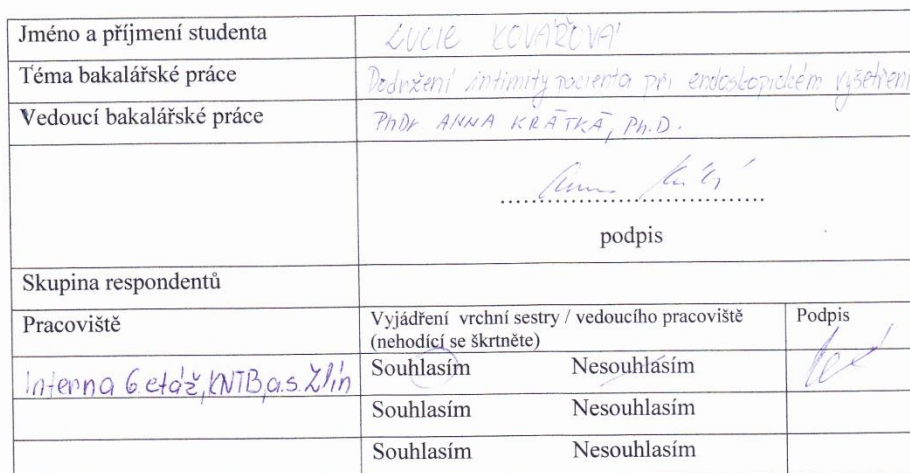 Jméno a příjmení studenta LUCIE KOVÁŘOVÁ
Téma bakalářské práce Dodržení intimity pacienta při endoskopickém vyšetření
Vedoucí bakalářské práce PhDr ANNA KRÁTKÁ, Ph.D.
podpis
Skupina respondentů
Pracoviště Vyjádření vrchní sestry / vedoucího pracoviště Podpis
(nehodící se škrtněte)
Interna 6 etáž, KNTB, a.s. Zlín Souhlasím Nesouhlasím
Souhlasím Nesouhlasím
Souhlasím Nesouhlasím